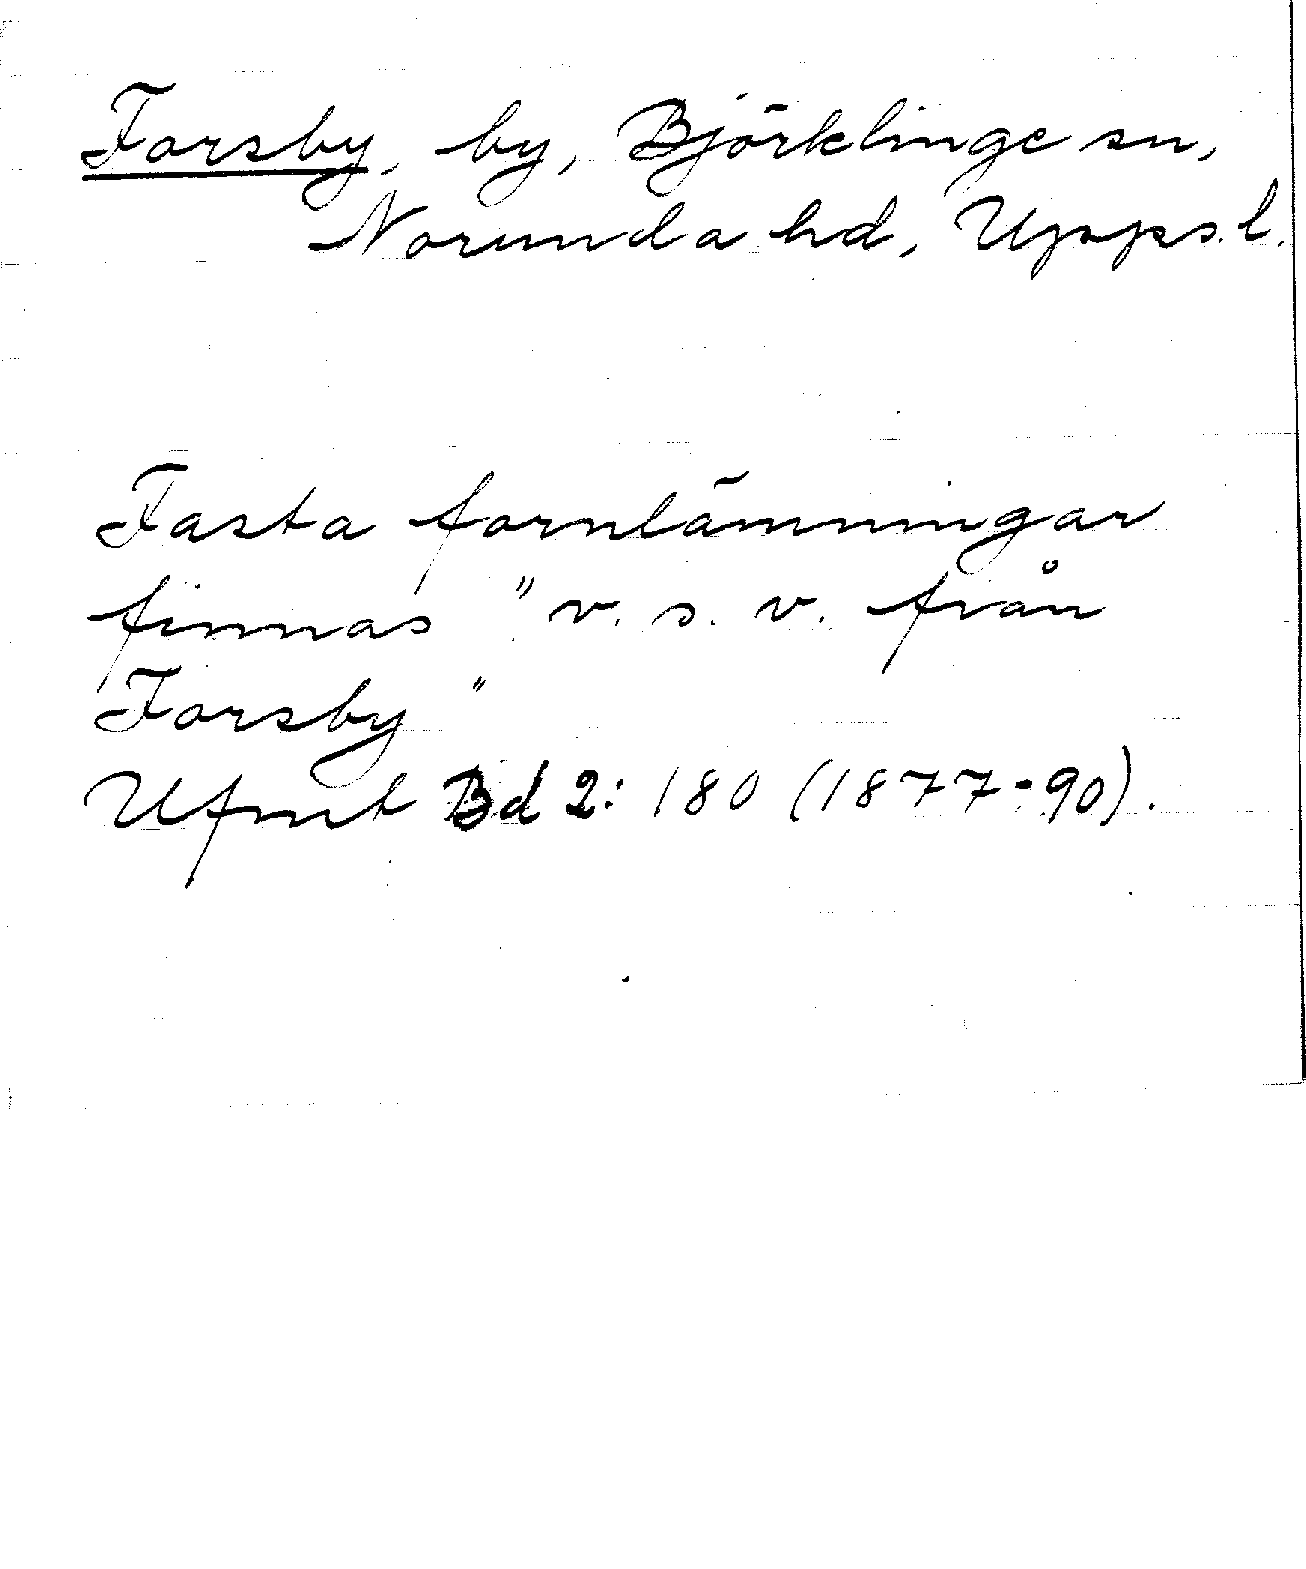 Forsby, by, Björklinge sn,
Norunda hd, Upps.l.
Fasta fornlämningar
finnas "v. s. v. från
Forsby"
Ufmt Bd 2: 180 (1877-90).